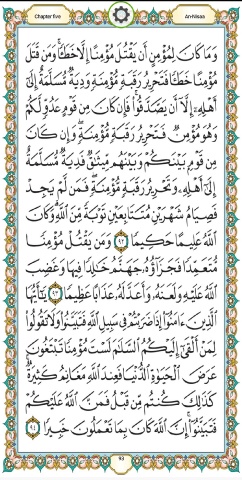 Chapter five
An-Nisaa
وَمَا كَانَ لِمُؤْمِنٍ أَن يَقْتُلَ مُؤْمِنًا إِلَّا خَطَـًٔا ۚ وَمَن قَتَلَ
مُؤْمِنًا خَطَـًٔا فَتَحْرِيرُ رَقَبَةٍ مُّؤْمِنَةٍ وَدِيَةٌ مُّسَلَّمَةٌ إِلَىٰٓ
أَهْلِهِۦٓ إِلَّآ أَن يَصَّدَّقُوا۟ ۚ فَإِن كَانَ مِن قَوْمٍ عَدُوٍّ لَّكُمْ
وَهُوَ مُؤْمِنٌ فَتَحْرِيرُ رَقَبَةٍ مُّؤْمِنَةٍ ۖ وَإِن كَانَ
مِن قَوْمٍۭ بَيْنَكُمْ وَبَيْنَهُم مِّيثَـٰقٌ فَدِيَةٌ مُّسَلَّمَةٌ
إِلَىٰٓ أَهْلِهِۦ وَتَحْرِيرُ رَقَبَةٍ مُّؤْمِنَةٍ ۖ فَمَن لَّمْ يَجِدْ
فَصِيَامُ شَهْرَيْنِ مُتَتَابِعَيْنِ تَوْبَةً مِّنَ ٱللَّهِ ۗ وَكَانَ
ٱللَّهُ عَلِيمًا حَكِيمًا ٩٢ وَمَن يَقْتُلْ مُؤْمِنًا
مُّتَعَمِّدًا فَجَزَآؤُهُۥ جَهَنَّمُ خَـٰلِدًا فِيهَا وَغَضِبَ
ٱللَّهُ عَلَيْهِ وَلَعَنَهُۥ وَأَعَدَّ لَهُۥ عَذَابًا عَظِيمًا ٩٣ يَـٰٓأَيُّهَا
ٱلَّذِينَ ءَامَنُوٓا۟ إِذَا ضَرَبْتُمْ فِى سَبِيلِ ٱللَّهِ فَتَبَيَّنُوا۟ وَلَا تَقُولُوا۟
لِمَنْ أَلْقَىٰٓ إِلَيْكُمُ ٱلسَّلَـٰمَ لَسْتَ مُؤْمِنًا تَبْتَغُونَ
عَرَضَ ٱلْحَيَوٰةِ ٱلدُّنْيَا فَعِندَ ٱللَّهِ مَغَانِمُ كَثِيرَةٌ ۚ
كَذَٰلِكَ كُنتُم مِّن قَبْلُ فَمَنَّ ٱللَّهُ عَلَيْكُمْ
فَتَبَيَّنُوٓا۟ ۚ إِنَّ ٱللَّهَ كَانَ بِمَا تَعْمَلُونَ خَبِيرًا ٩٤
93